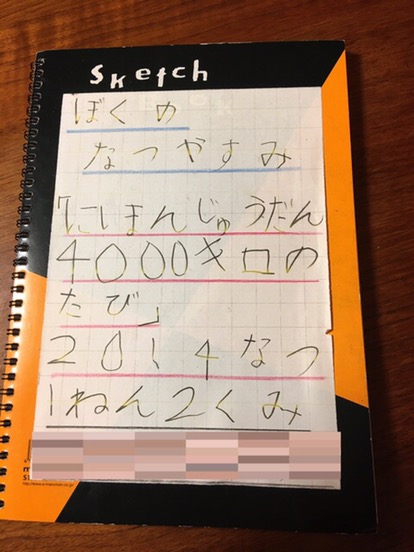 Sketch
ぼくの
なつやすみ
「にほんじゅうだん
4000キロの
たび」
2014なつ
1ねん2くみ